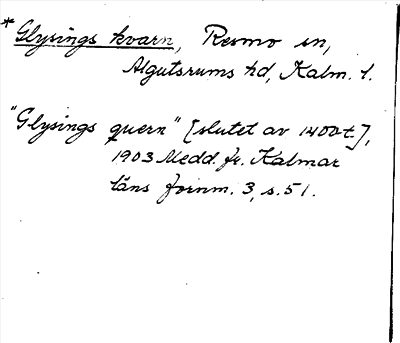 *Glysings kvarn, Resmo sn,
Algutsrums hd, Kalm. l.
"Glysings quern" [slutet av 1400-t],
1903 Medd. fr. Kalmar
läns fornm. 3, s. 51.